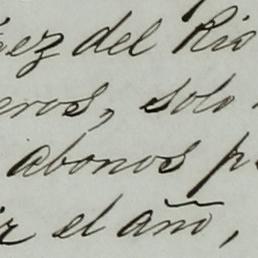 ez del Rio
eros, solo
abonos p
ir el año,